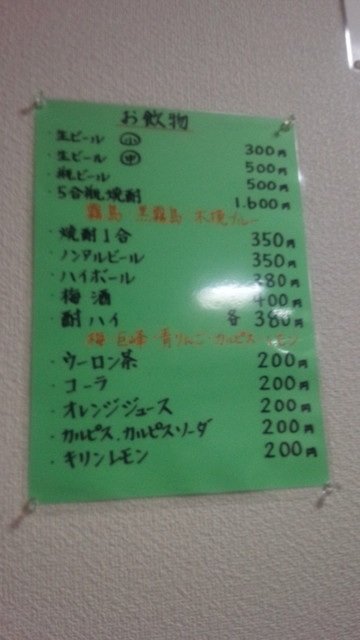 お飲物
・生ビール ㊥小 300円
・生ビール ㊥ 500円
・瓶ビール 500円
・5合瓶焼酎 1.600円
霧島 黒霧島 木挽ブルー
・焼酎1合 350円
・ノンアルビール 350円
・ハイボール 380円
・梅酒 400円
・酎ハイ 各380円
梅 巨峰 青りんご・カルピス・レモン
・ウーロン茶 200円
・コーラ 200円
・オレンジジュース 200円
・カルピス、カルピスソーダ 200円
・キリンレモン 200円